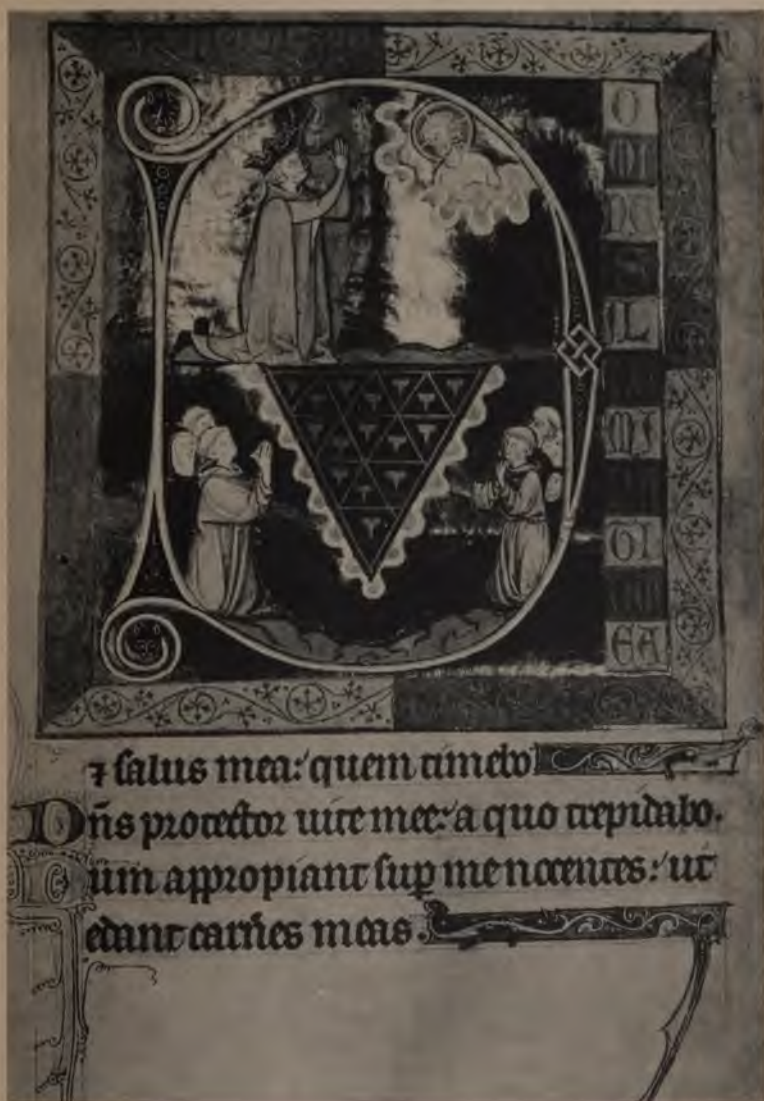 O
MI
N
S
IL
MI
TI
EA
⁊ salus mea: quem timebo
Dn̄s protector uite mee: a quo trepidabo.
um appropiant sup̱ me nocentes: ut
edant carnes meas.